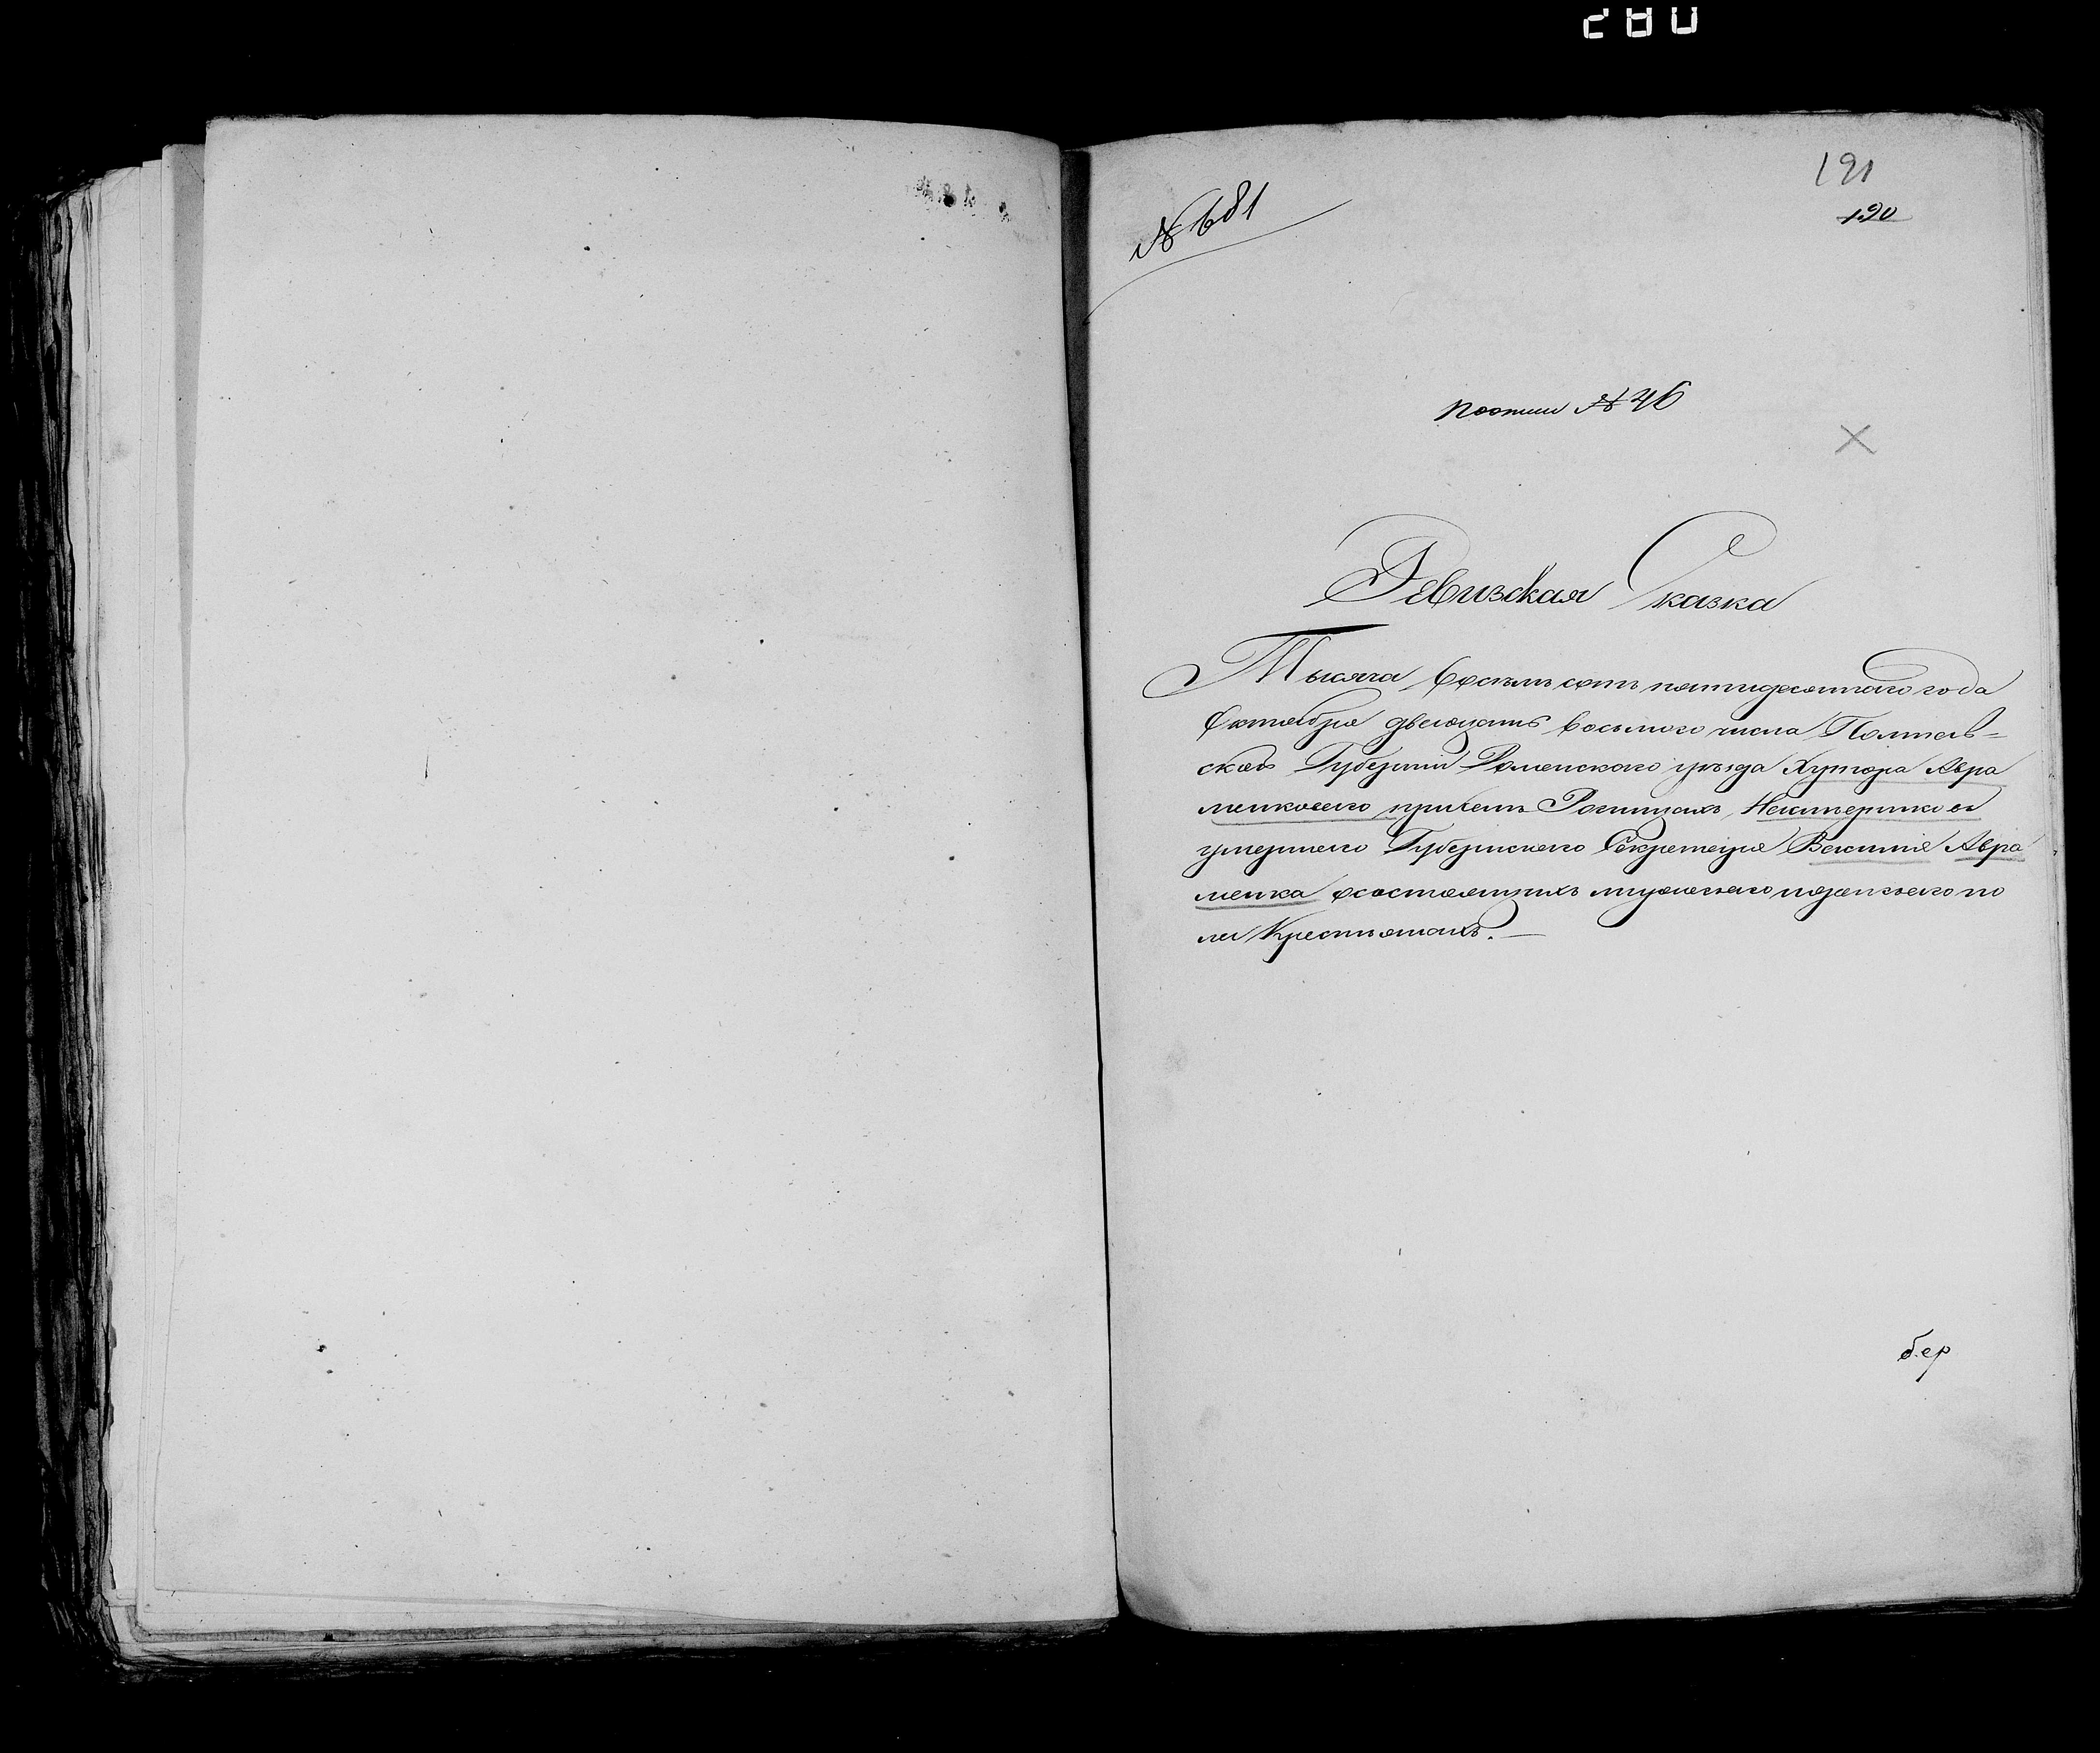 280
191
190
№ 681
№ 46
Ревизская Сказка
Тысяча восемь сотъ пятидесятого года
Октября двадцать восьмого числа Полтав=
ской Губернии Роменского уезда Хутора Авра
менкового
умершего Губернского Секретаря Василия Авра
менка осостоящихъ мужеского иженского по
ла Крестьянахъ.—